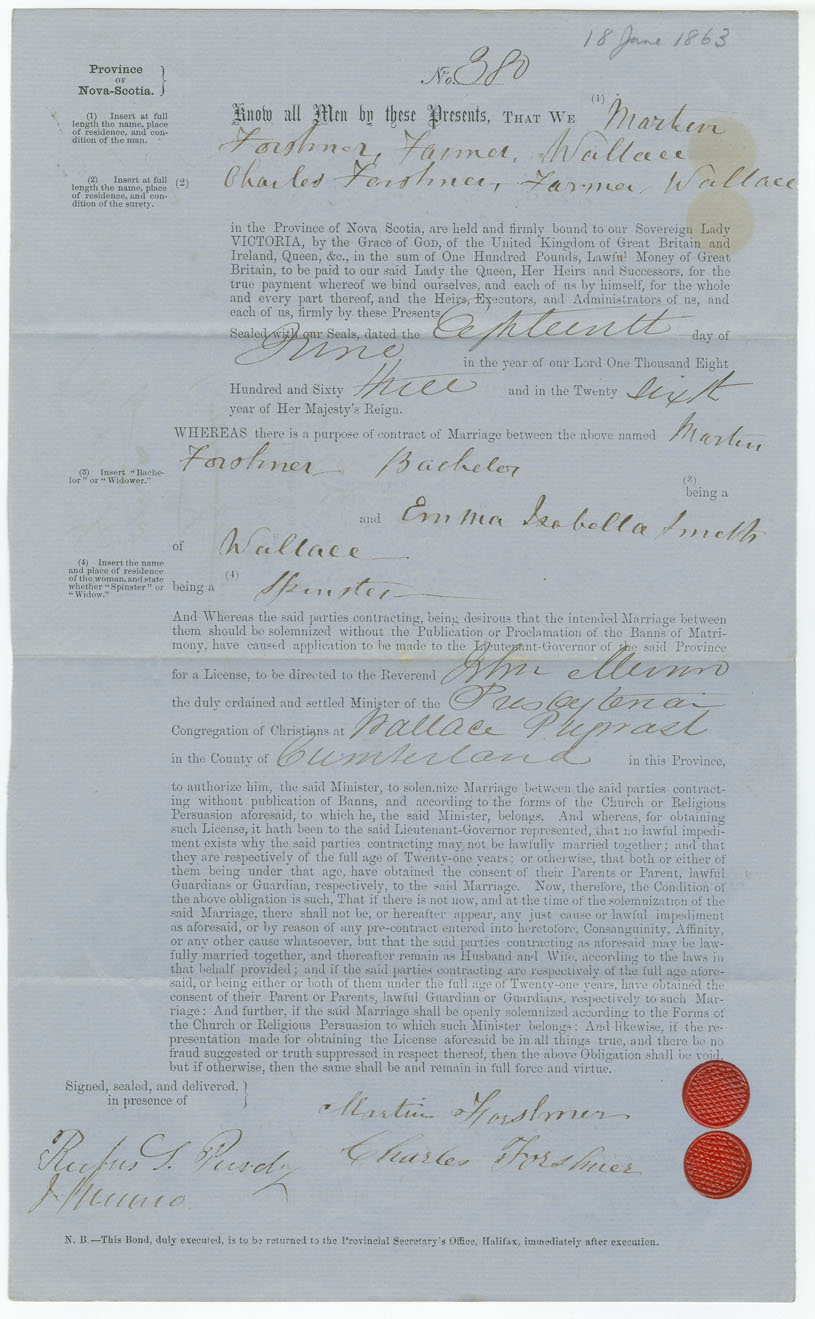 18 June 1863
Province
OF
Nova-Scotia.
No. 380
(1) Insert at full
length the name, place
of residence, and con-
dition of the man.
Know all Men by these Presents, THAT WE (1) Martin
Forshner, Farmer, Wallace
(2) Insert at full
length the name, place
of residence, and con-
dition of the surety.
(2) Charles Forshner, Farmer, Wallace
in the Province of Nova Scotia, are held and firmly bound to our Sovereign Lady
VICTORIA, by the Grace of GOD, of the United Kingdom of Great Britain and
Ireland, Queen, &c., in the sum of One Hundred Pounds, Lawful Money of Great
Britain, to be paid to our said Lady the Queen, Her Heirs and Successors, for the
true payment whereof we bind ourselves, and each of us by himself, for the whole
and every part thereof, and the Heirs, Executors, and Administrators of us, and
each of us, firmly by these Presents.
Sealed with our Seals, dated the Eighteenth day of
June in the year of our Lord One Thousand Eight
Hundred and Sixty three and in the Twenty sixth
year of Her Majesty's Reign.
WHEREAS there is a purpose of contract of Marriage between the above named Martin
Forshner Bachelor
(3) Insert "Bache-
lor" or "Widower."
(3)
being a
and Emma Isabella Smith
of Wallace
(4) Insert the name
and place of residence
of the woman, and state
whether "Spinster" or
"Widow."
being a (4) Spinster
And Whereas the said parties contracting, being desirous that the intended Marriage between
them should be solemnized without the Publication or Proclamation of the Banns of Matri-
mony, have caused application to be made to the Lieutenant-Governor of the said Province
for a License, to be directed to the Reverend John Munro
the duly ordained and settled Minister of the Presbyterian
Congregation of Christians at Wallace
in the County of Cumberland in this Province,
to authorize him, the said Minister, to solemnize Marriage between the said parties contract-
ing without publication of Banns, and according to the forms of the Church or Religious
Persuasion aforesaid, to which he, the said Minister, belongs. And whereas, for obtaining
such License, it hath been to the said Lieutenant-Governor represented, that no lawful impedi-
ment exists why the said parties contracting may not be lawfully married together; and that
they are respectively of the full age of Twenty-one years; or otherwise, that both or either of
them being under that age, have obtained the consent of their Parents or Parent, lawful
Guardians or Guardian, respectively, to the said Marriage. Now, therefore, the Condition of
the above obligation is such, That if there is not now, and at the time of the solemnization of the
said Marriage, there shall not be, or hereafter appear, any just cause or lawful impediment
as aforesaid, or by reason of any pre-contract entered into heretofore, Consanguinity, Affinity,
or any other cause whatsoever, but that the said parties contracting as aforesaid may be law-
fully married together, and thereafter remain as Husband and Wife, according to the laws in
that behalf provided; and if the said parties contracting are respectively of the full age afore-
said, or being either or both of them under the full age of Twenty-one years, have obtained the
consent of their Parent or Parents, lawful Guardian or Guardians, respectively to such Mar-
riage: And further, if the said Marriage shall be openly solemnized according to the Forms of
the Church or Religious Persuasion to which such Minister belongs: And likewise, if the re-
presentation made for obtaining the License aforesaid be in all things true, and there be no
fraud suggested or truth suppressed in respect thereof, then the above Obligation shall be void,
but if otherwise, then the same shall be and remain in full force and virtue.
Signed, sealed, and delivered,
in presence of
Martin Forshner
Rufus S. Purdy
Charles Forshner
J Munro
N. B.—This Bond, duly executed, is to be returned to the Provincial Secretary's Office, Halifax, immediately after execution.